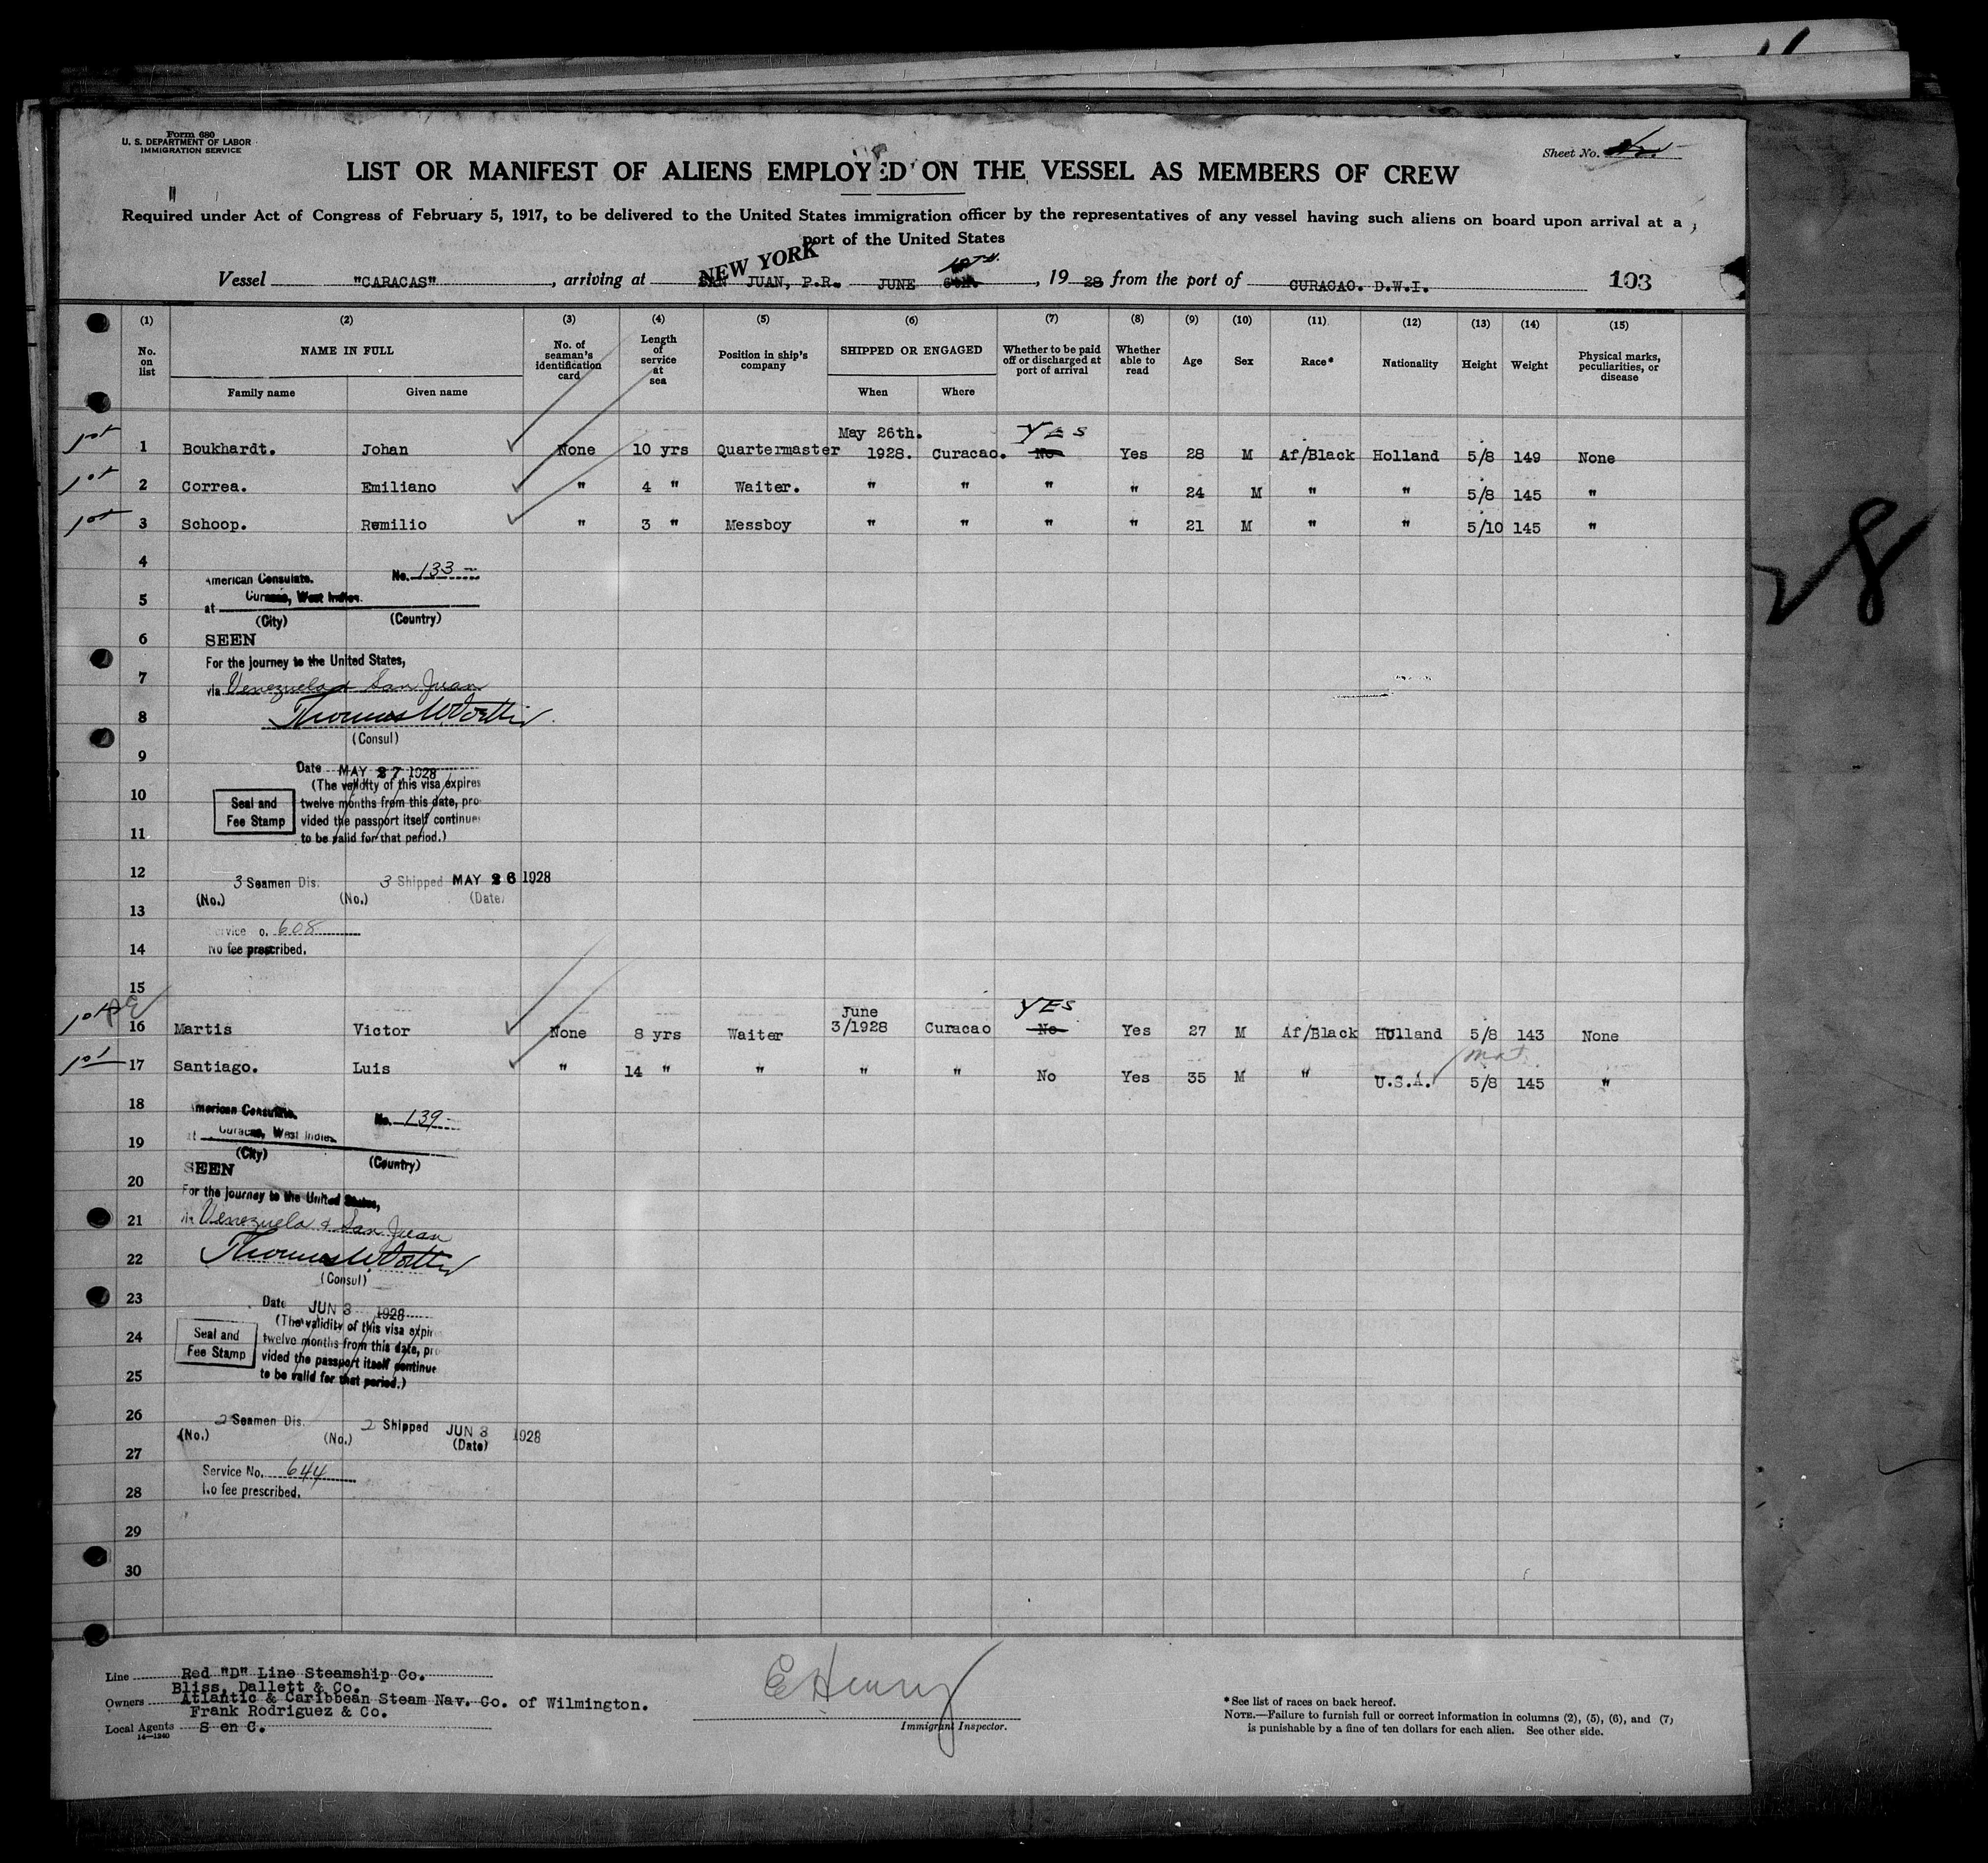 Form 680
U. S. DEPARTMENT OF LABOR
IMMIGRATION SERVICE
Sheet No.
LIST OR MANIFEST OF ALIENS EMPLOYED ON THE VESSEL AS MEMBERS OF CREW
Required under Act of Congress of February 5, 1917, to be delivered to the United States immigration officer by the representatives of any vessel having such aliens on board upon arrival at a
port of the United States
NEW YORK 10TH.
Vessel "CARACAS", arriving at SAN JUAN, P.R. JUNE 6th, 1928 from the port of CURACAO. D.W.I. 103
(1) (2) (3) (4) (5) (6) (7) (8) (9) (10) (11) (12) (13) (14) (15)
No. on list NAME IN FULL Family name Given name No. of seaman's identification card Length of service at sea Position in ship's company SHIPPED OR ENGAGED When Where Whether to be paid off or discharged at port of arrival Whether able to read Age Sex Race* Nationality Height Weight Physical marks, peculiarities, or disease
May 26th. YES
1 Boukhardt. Johan None 10 yrs Quartermaster 1928. Curacao. No Yes 28 M Af/Black Holland 5/8 149 None
2 Correa. Emiliano " 4 " Waiter. " " " " 24 M " " 5/8 145 "
3 Schoop. Remilio " 3 " Messboy " " " " 21 M " " 5/10 145 "
4
American Consulate. No. 133
5
at Curacao, West Indies.
(City) (Country)
6 SEEN
For the journey to the United States,
7
via Venezuela & San Juan
8
(Consul)
9
Date MAY 27 1928
(The validity of this visa expires
10
Seal and Fee Stamp
twelve months from this date, pro-
vided the passport itself continues
11
to be valid for that period.)
12
3 Seamen Dis. 3 Shipped MAY 26 1928
(No.) (No.) (Date)
13
608
14 No fee prescribed.
15
June YES
16 Martis Victor None 8 yrs Waiter 3/1928 Curacao No Yes 27 M Af/Black Holland 5/8 143 None
17 Santiago. Luis " 14 " " " " No Yes 35 M " U.S.A. 5/8 145 "
18
American Consulate. No. 139
19
at Curacao, West Indies
(City) (Country)
SEEN
20
For the journey to the United States,
21
Venezuela & San Juan
22
(Consul)
23
Date JUN 3 1928
(The validity of this visa expires
24
Seal and Fee Stamp
twelve months from this date, pro
vided the passport itself continue
25
to be valid for that period.)
26
2 Seamen Dis. 2 Shipped JUN 3 1928
(No.) (No.) (Date)
27
Service No. 644
28 No fee prescribed.
29
30
28
Line Red "D" Line Steamship Co.
Bliss, Dallett & Co.
Owners Atlantic & Caribbean Steam Nav. Co. of Wilmington.
Frank Rodriguez & Co.
Local Agents S en C.
14—1240
E Henry
Immigrant Inspector.
* See list of races on back hereof.
NOTE.—Failure to furnish full or correct information in columns (2), (5), (6), and (7)
is punishable by a fine of ten dollars for each alien. See other side.